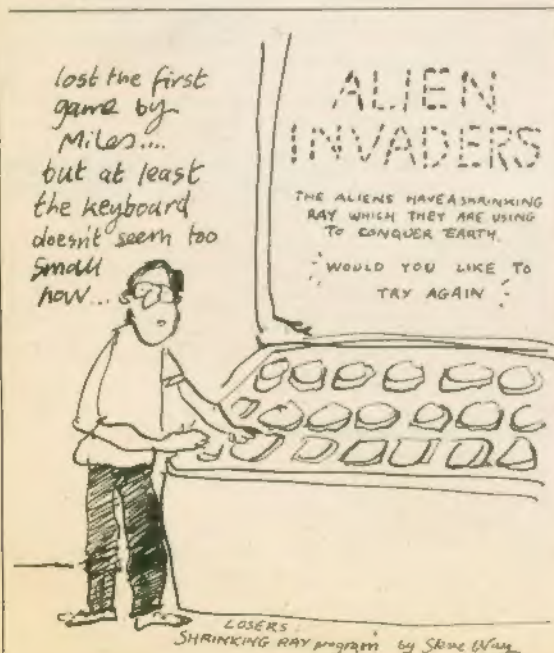 lost the first
game by
Miles....
but at least
the keyboard
doesn't seem too
small
now...
ALIEN
INVADERS
THE ALIENS HAVE A SHRINKING
RAY WHICH THEY ARE USING
TO CONQUER EARTH.
WOULD YOU LIKE TO
TRY AGAIN
LOSERS
SHRINKING RAY program by Steve